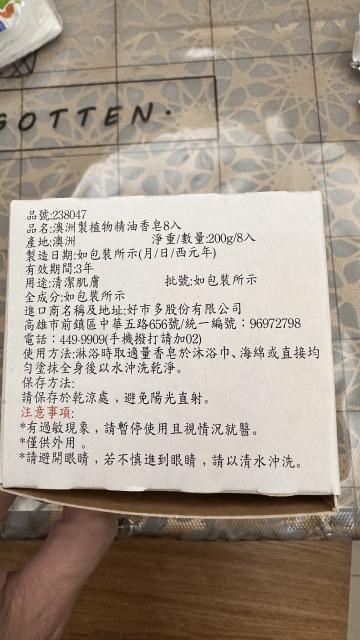 GOTTEN.
品號:238047
品名:澳洲製植物精油香皂8入
產地:澳洲 淨重/數量:200g/8入
製造日期:如包裝所示(月/日/西元年)
有效期間:3年
用途:清潔肌膚 批號:如包裝所示
全成分:如包裝所示
進口商名稱及地址:好市多股份有限公司
高雄市前鎮區中華五路656號/統一編號：96972798
電話：449-9909(手機撥打請加02)
使用方法:淋浴時取適量香皂於沐浴巾、海綿或直接均
勻塗抹全身後以水沖洗乾淨。
保存方法:
請保存於乾涼處，避免陽光直射。
注意事項:
*有過敏現象，請暫停使用且視情況就醫。
*僅供外用。
*請避開眼睛，若不慎進到眼睛，請以清水沖洗。